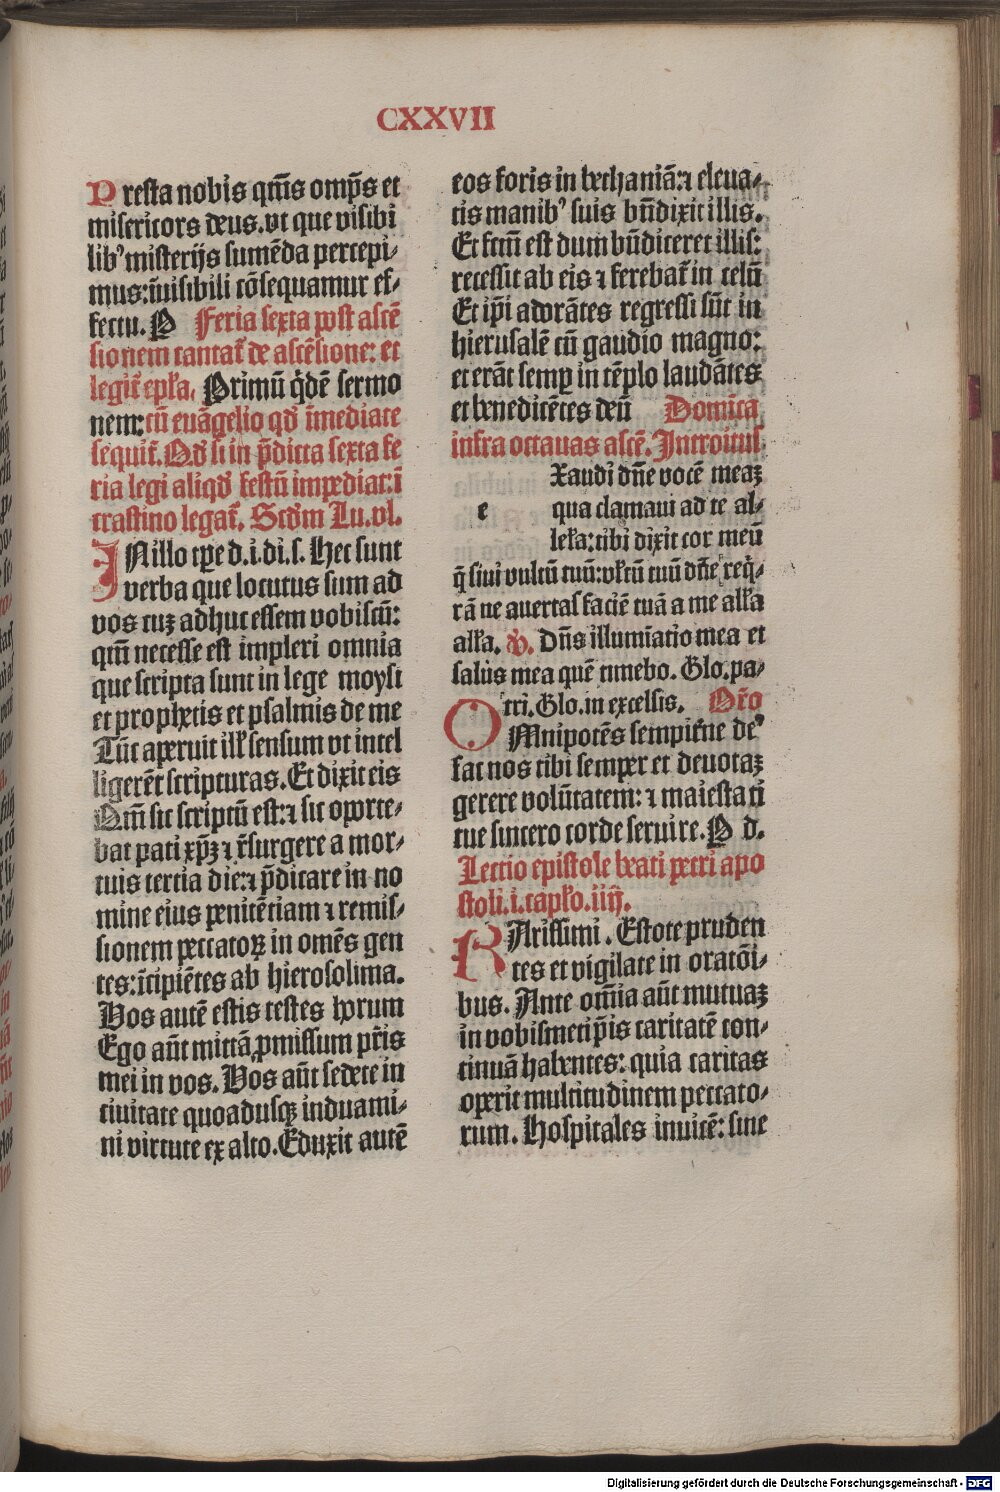 CXXVII
Presta nobis qm̄s omp̄s et
misericors deus.vt que visibi
libꝰ misterijs sumēda percepi⸗
mus:īuisibili cōsequamur ef⸗
fectu. P Feria sexta post ascē
sionem cantat̄ de ascēsione: et
legit̄ epła. Primū q̇dē sermo
nem:cū euāgelio qd̄ īmediate
sequit̄. Qd̄ si in p̄dicta sexta fe
ria legi aliqd̄ festū impediat:ī
crastino legat̄. Scd̄m Lu.vl.
IN illo tp̄e d.i.di.s. Hec sunt
verba que locutus sum ad
vos cuz adhuc essem vobiscū:
qm̄ necesse est impleri omnia
que scripta sunt in lege moysi
et prophetis et psalmis de me
Tūc aperuit ill̓ sensum vt intel
ligerēt scripturas. Et dixit eis
Qm̄ sic scriptū est:⁊ sic oporte⸗
bat pati xp̄ꝫ ⁊ r̄surgere a mor⸗
tuis tercia die:⁊ p̄dicare in no
mine eius penitētiam ⁊ remis⸗
sionem peccatoꝝ in omēs gen
tes:īcipiētes ab hierosolima.
Vos autē estis testes horum
Ego aūt mittā ꝓmissum pr̄is
mei in vos. Vos aūt sedete in
ciuitate quoadusqꝫ induami⸗
ni virtute ex alto. Eduxit autē
eos foris in bethaniā:⁊ eleua⸗
tis manibꝰ suis bn̄dixit illis.
Et fctm̄ est dum bn̄diceret illis:
recessit ab eis ⁊ ferebat̄ in celū
Et ip̄i adorātes regressi sūt in
hierusalē cū gaudio magno:
et erāt semꝑ in tēplo laudātes
et benedicētes deū Domīca
infra octauas ascē. Introitus
Xaudi dn̄e vocē meaꝫ
e qua clamaui ad te al⸗
lełа:tibi dixit cor meū
q̄siui vultū tuū:vl̓tū tuū dn̄e req̇⸗
rā ne auertas faciē tuā a me alła
alła. V̓. Dn̄s illumīatio mea et
salus mea quē timebo. Glo.pa⸗
tri. Glo.in excelsis. Or̄o
OMnipotēs sempit̓ne deꝰ
fac nos tibi semper et deuotaꝫ
gerere volūtatem: ⁊ maiestati
tue sincero corde seruire. P d.
Lectio epistole beati petri apo
stoli.i.capło.iiij.
KArissimi. Estote pruden
tes et vigilate in oratōi⸗
bus. Ante om̄ia aūt mutuaꝫ
in vobismetip̄is caritatē con⸗
tinuā habentes: quia caritas
operit multitudinem peccato⸗
rum. Hospitales inuicē: sine
Digitalisierung gefördert durch die Deutsche Forschungsgemeinschaft - DFG